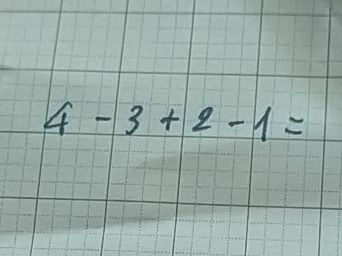 4 - 3 + 2 - 1 =